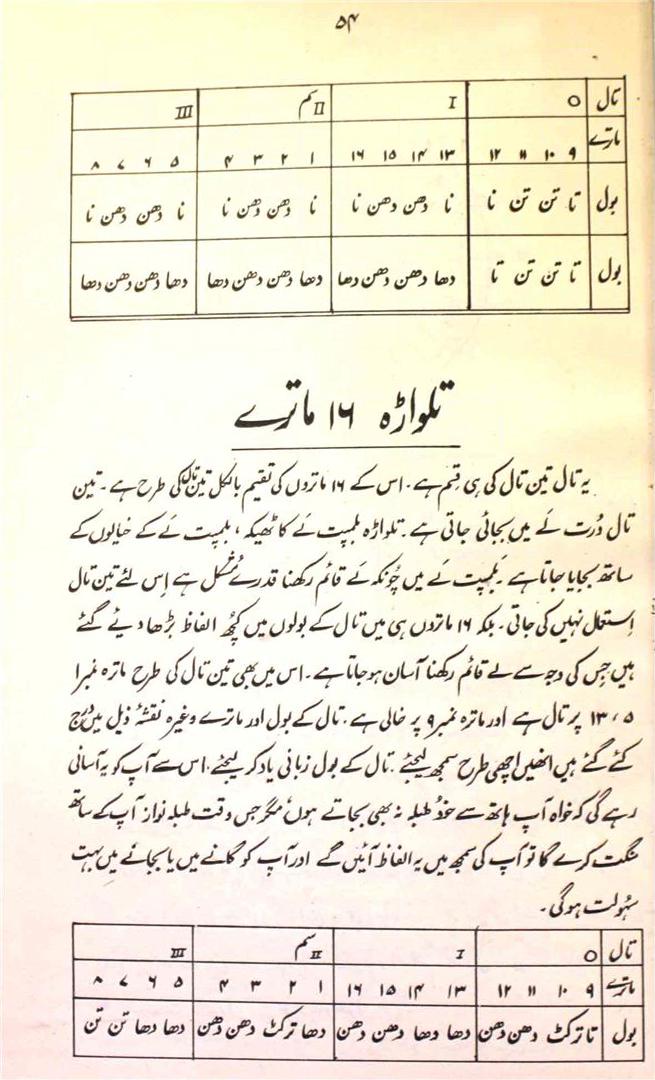 ۵۴
تال O I II سم III
ماترے ۹ ۱۰ ۱۱ ۱۲ ۱۳ ۱۴ ۱۵ ۱۶ ۱ ۲ ۳ ۴ ۵ ۶ ۷ ۸
بول تا تن تن نا نا دھن دھن نا نا دھن دھن نا نا دھن دھن نا
بول تا تن تن تا دھا دھن دھن دھا دھا دھن دھن دھا دھا دھن دھن دھا
تلواڑہ ۱۶ ماترے
یہ تال تین تال کی ہی قسم ہے۔ اس کے ۱۶ ماتروں کی تقیم بالکل تین تال کی طرح ہے۔ تین
تال دُرت لَے میں بجائی جاتی ہے۔ تلواڑہ بلمپت لَے کا ٹھیکہ، بلمپت لَے کے خیالوں کے
ساتھ بجایا جاتا ہے۔ بلمپت لَے میں چونکہ لَے قائم رکھنا قدرے مُشکل ہے اِس لئے تین تال
اِستعمال نہیں کی جاتی۔ بلکہ ۱۶ ماتروں ہی میں تال کے بولوں میں کچھ الفاظ بڑھا دیئے گئے
ہیں جس کی وجہ سے لے قائم رکھنا آسان ہو جاتا ہے۔ اس میں بھی تین تال کی طرح ماترہ نمبر ۱
۵، ۱۳ پر تال ہے اور ماترہ نمبر ۹ پر خالی ہے۔ تال کے بول اور ماترے وغیرہ نقشۂ ذیل میں درج
کئے گئے ہیں انھیں اچھی طرح سمجھ لیجئے۔ تال کے بول زبانی یاد کر لیجئے، اس سے آپ کو یہ آسانی
رہے گی کہ خواہ آپ ہاتھ سے خود طبلہ نہ بھی بجاتے ہوں مگر جس وقت طبلہ نواز آپ کے ساتھ
سنگت کرے گا تو آپ کی سمجھ میں یہ الفاظ آئیں گے اور آپ کو گانے میں یا بجانے میں بہت
سہولت ہوگی۔
تال O I II سم III
ماترے ۹ ۱۰ ۱۱ ۱۲ ۱۳ ۱۴ ۱۵ ۱۶ ۱ ۲ ۳ ۴ ۵ ۶ ۷ ۸
بول تا ترکٹ دھن دھن دھا دھا دھن دھن دھا ترکٹ دھن دھن دھا دھا تن تن